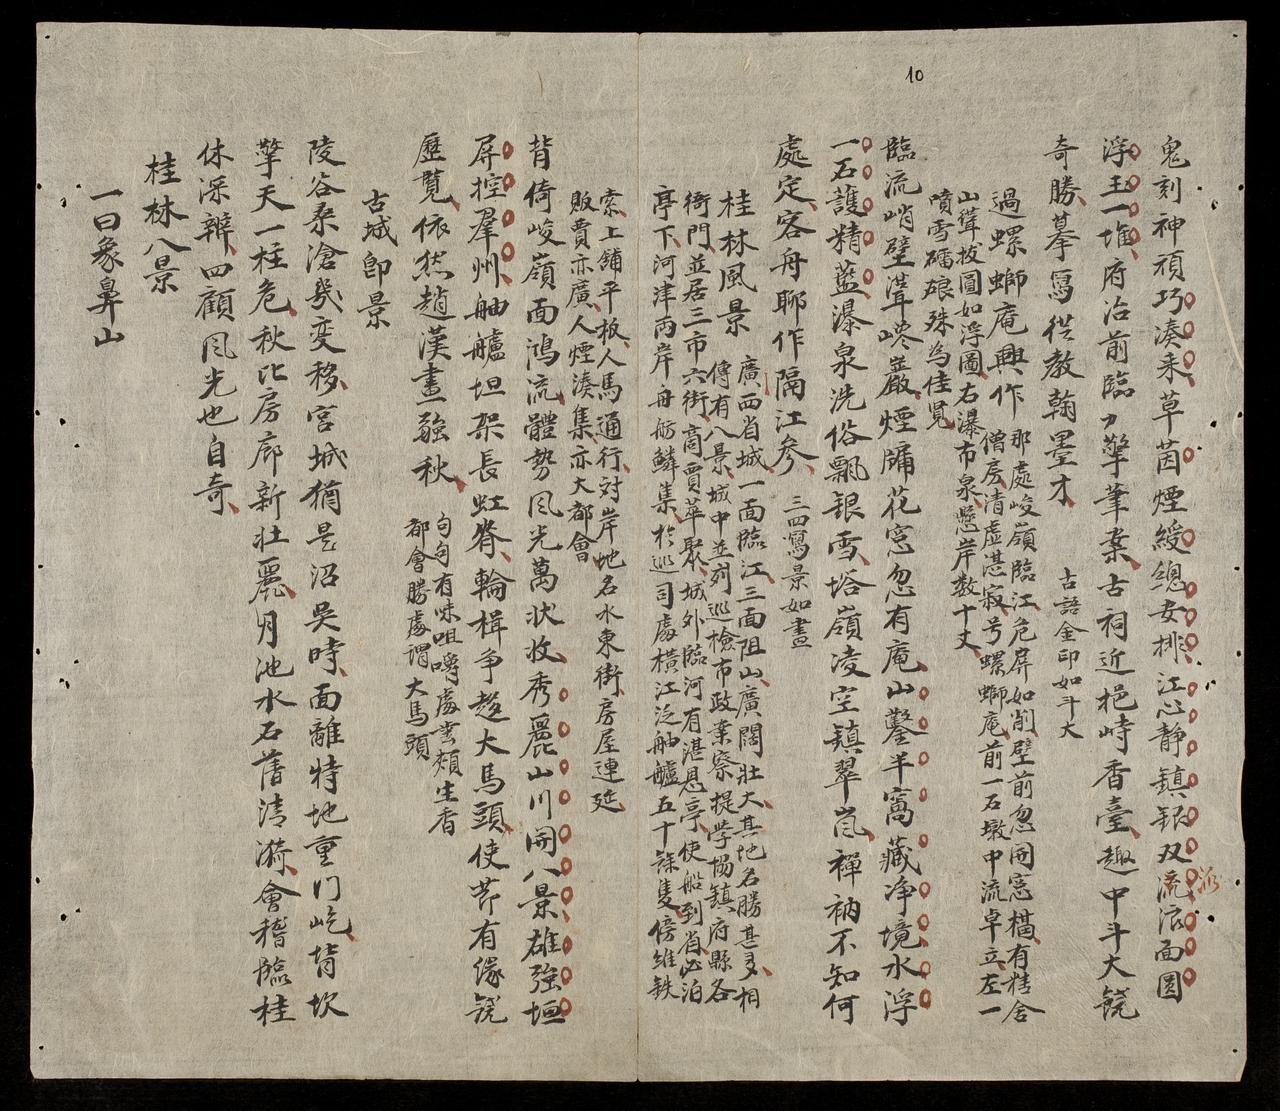 10
鬼刻神頑巧湊来草茵煙綬總安排江心静鎮銀双流浤面圓
派
浮玉一堆府治前臨力擎筆案古祠近挹峙香臺趣中斗大饒
奇勝摹寫從教翰墨才
古語金印如斗大
過螺螄庵興作
那處峻嶺臨江危屏如削壁前忽開窓櫺有精舍
僧房清虛湛寂号螺螄庵前一石墩中流卓立左一
山聳拔圓如浮圖右瀑布泉懸岸数十丈
噴雪礌硠殊為佳覧
臨流峭壁聳㟥巖煙牖花窓忽有庵山鑿半窩藏净境水浮
一石護精藍瀑泉洗俗飄银雪塔嶺凌空鎮翠嵐禪衲不知何
處定客舟聊作隔江参
三四寫景如畫
桂林風景
廣西省城一面臨江三面阻山廣闊壯大其地名勝甚多相
傳有八景城中並列巡檢布政業察提学協鎮府縣各
衙門並居三市六街啇賈萃聚城外臨河有湛恩亭使船到省必泊
亭下河津两岸舟舫鱗集於巡司處横江泛舳艫五十餘隻傍维鉄
索上鋪平板人馬通行対岸地名水東街房屋連延
販賣亦廣人煙湊集亦大都會
背倚峻嶺面鴻流體勢风光萬状收秀麗山川開八景雄強垣
屏控羣州舳艫坦架長虹脊輪楫争趍大馬頭使節有像饒
歷覧依然趙漢畫強秋
句句有味咀嚼處雲頰生香
都會勝處謂大馬頭
古城即景
陵谷桑滄幾变移宮城猶是沼吳時面離特地重门屹背坎
擎天一柱危秋比房廊新壮麗月池水石舊清漪會稽臨桂
休深辨四顧风光也自奇
桂林八景
一曰象鼻山